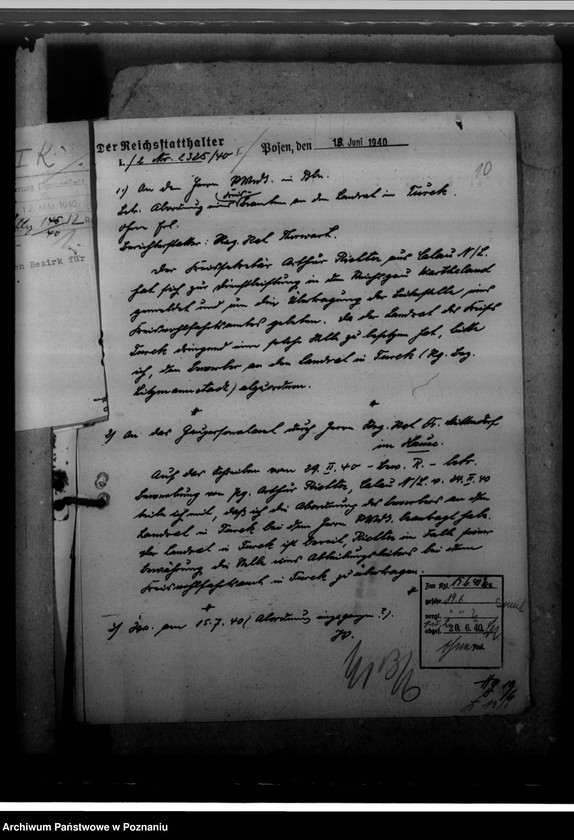 Der Reichsstatthalter
I./2 Nr. 2325/40
Posen, den 18. Juni 1940
10
1.) An den Herrn RMdI. in Bln.
Betr. Abordnung eines Beamten an den Landrat in Turek.
Ohne Erl.
Berichterstatter: Reg. Rat
Der Kreissekretär Arthur Richter aus Calau N/L.
hat sich zur Dienstleistung in den Reichsgau Wartheland
gemeldet und um die Übertragung der Leiterstelle eines
Kreiswohlfahrtsamtes gebeten. Da der Landrat des Kreises
Turek dringend eine solche Stelle zu besetzen hat, bitte
ich, den Bewerber an den Landrat in Turek (Reg. Bez.
Litzmannstadt) abzuordnen.
2) An das Gaupersonalamt durch Herrn Reg. Rat Dr.
im Hause.
Auf das Schreiben vom 29. II. 40 - Bew. R. - betr.
Bewerbung von Pg. Arthur Richter, Calau N/L. v. 24. II. 40
teile ich mit, daß ich die Abordnung des Bewerbers an den
Landrat in Turek bei dem Herrn RMdI. beantragt habe.
Der Landrat in Turek ist bereit, Richter im Falle seiner
Bewährung die Stelle eines Abteilungsleiters bei dem
Kreiswohlfahrtsamt in Turek zu übertragen.
3) Wv. am 15.7.40 (Abordnung eingegangen?).
Zur Kzl.
geschr. 19.6
vergl.
abges. 20. 6. 40
I K
2. MAI 1940
en Bezirk für
Archiwum Państwowe w Poznaniu